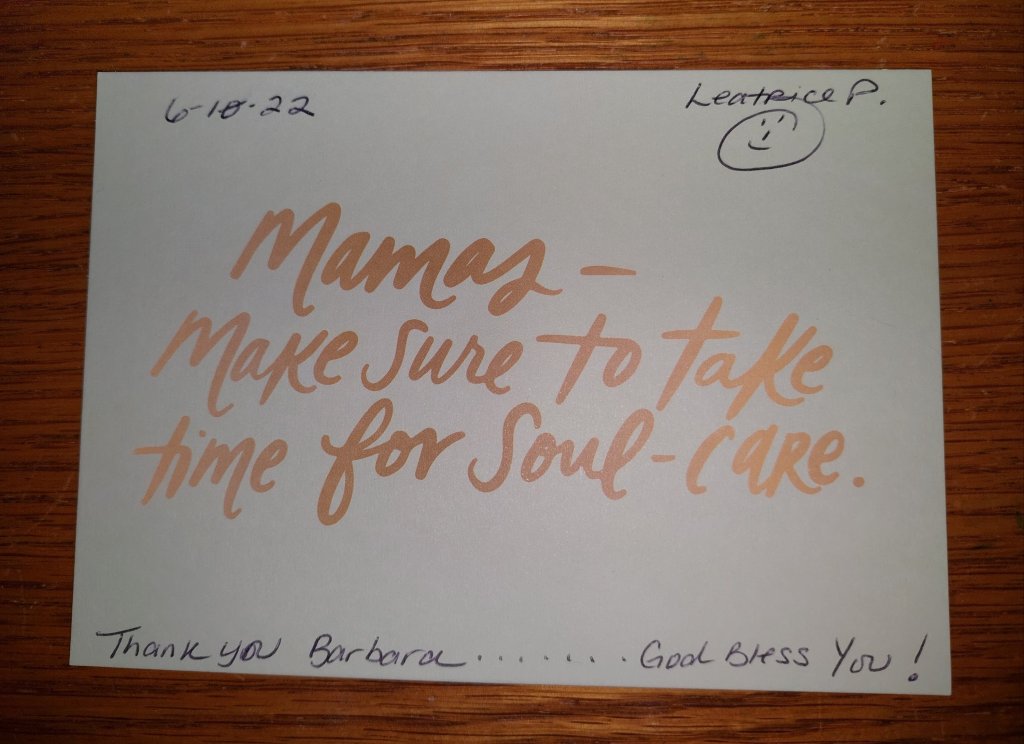 6-10-22
Leatrice P.
Mamas –
Make sure to take
time for soul-care.
Thank you Barbara....... God Bless You!